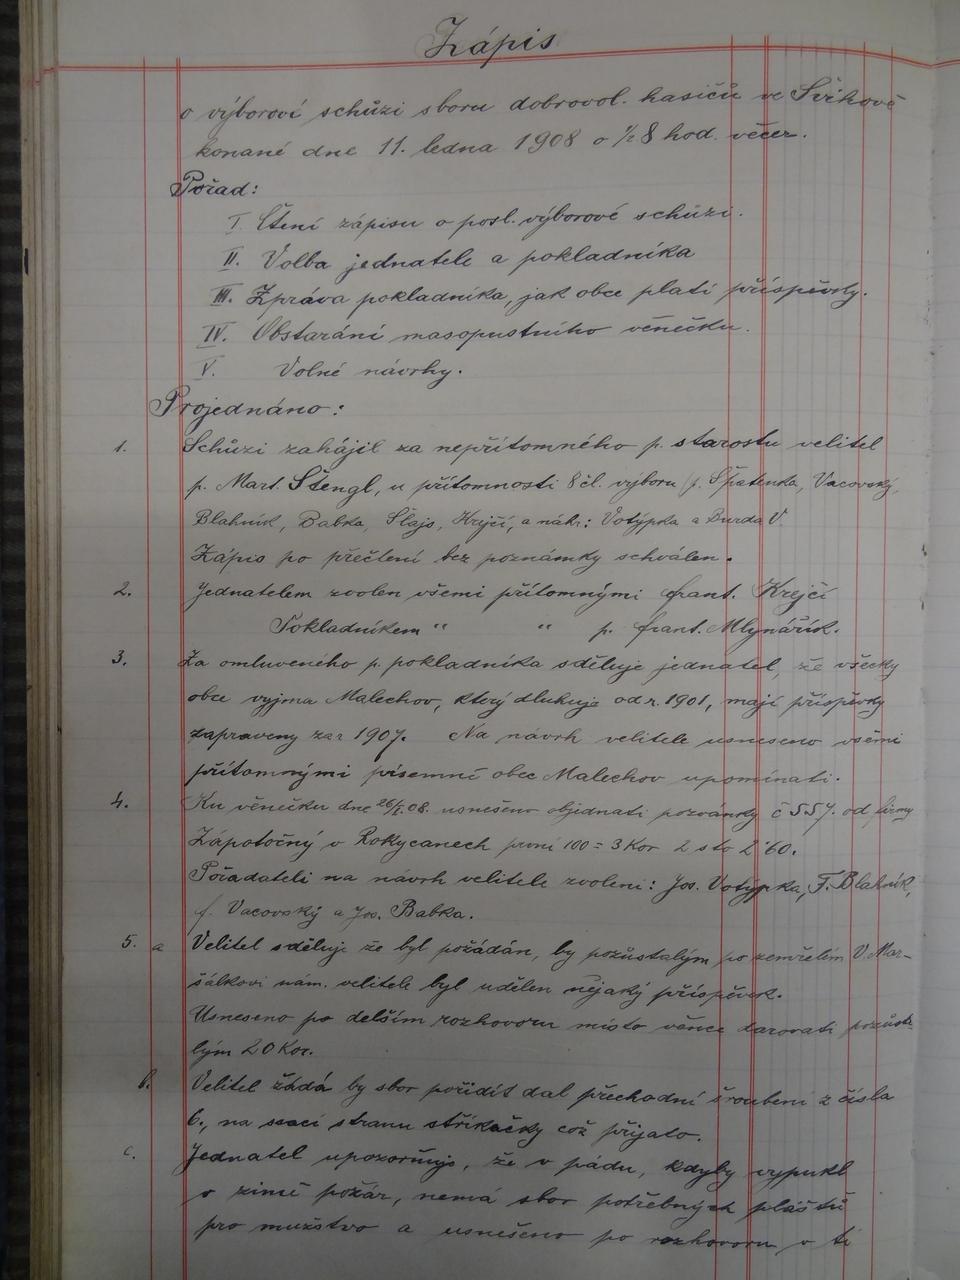 Zápis
o výborové schůzi sboru dobrovol. hasičů ve Švihově
konané dne 11. ledna 1908 o ½8 hod. večer.
Pořad:
I. Čtení zápisu o posl. výborové schůzi.
II. Volba jednatele a pokladníka
III. Zpráva pokladníka, jak obce platí příspěvky.
IV. Obstarání masopustního věnečku.
V. Volné návrhy.
Projednáno:
1. Schůzi zahájil za nepřítomného p. starostu velitel
p. Mart. Štengl, u přítomnosti 8 čl. výboru (p. Špatenka, Vacovský,
Blahník, Babka, Šlajs, Krejčí, a náhr.: Votýpka a Burda V.
Zápis po přečtení bez poznámky schválen.
2. Jednatelem zvolen všemi přítomnými frant. Krejčí
Pokladníkem " " p. frant. Mlynářík.
3. Za omluveného p. pokladníka sděluje jednatel, že všecky
obce vyjma Malechov, který dluhuje od r. 1901, mají příspěvky
zapraveny za r 1907. Na návrh velitele usneseno všemi
přítomnými písemně obec Malechov upomínati.
4. Ku věnečku dne 26/I.08. usneseno objednati pozvánky č 557. od firmy
Zápotočný v Rokycanech první 100 = 3 Kor 2 sto 2·60.
Pořadateli na návrh velitele zvoleni: Jos. Votýpka, F. Blahník,
f. Vacovský a Jos. Babka.
5. a Velitel sděluje že byl požádán, by pozůstalým po zemřelém V. Mar-
šálkovi nám. velitele byl udělen nějaký příspěvek.
Usneseno po delším rozhovoru místo věnce darovati pozůsta-
lým 20 Kor.
b. Velitel žádá by sbor poříditi dal přechodní šroubení z čísla
6., na ssací stranu stříkačky což přijato.
c. Jednatel upozorňuje, že v pádu, kdyby vypukl
v zimě požár, nemá sbor potřebných pláštů
pro mužstvo a usneseno po rozhovoru v té